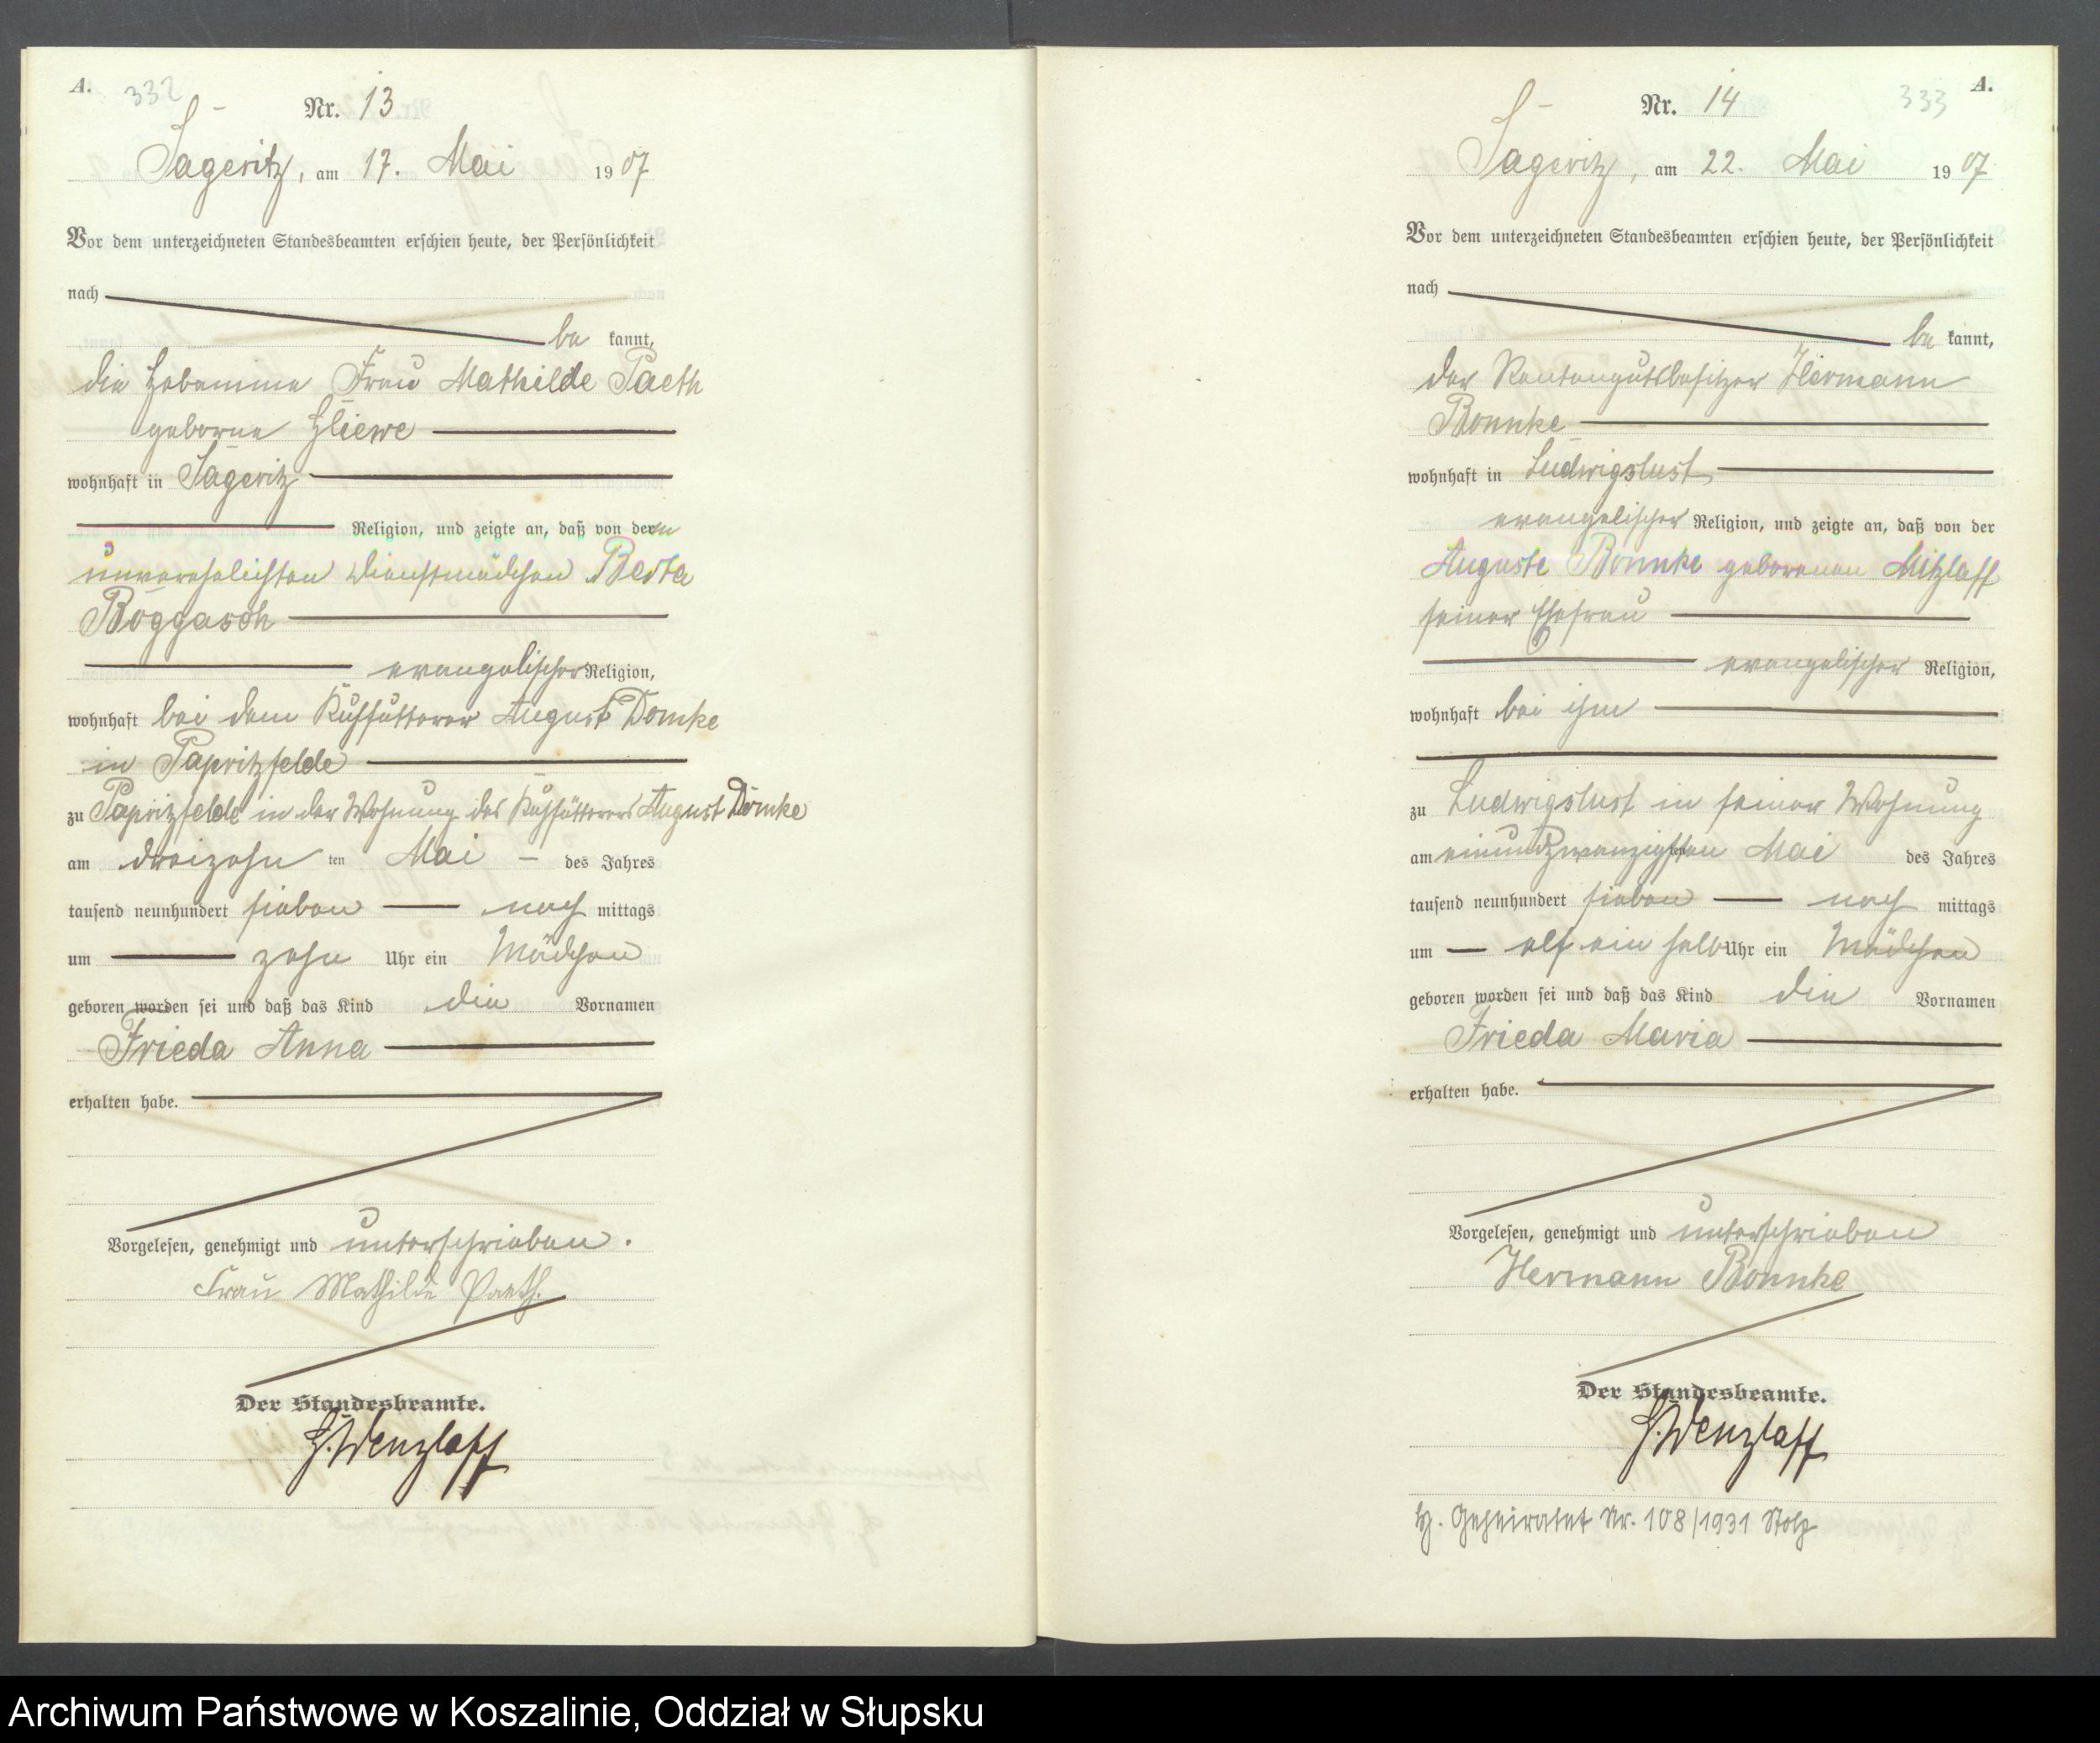 A.
332
Nr. 13
Sageritz, am 17. Mai 1907
Vor dem unterzeichneten Standesbeamten erschien heute, der Persönlichkeit
nach
be kannt,
die Hebamme Frau Mathilde Paeth
geborne Gliewe
wohnhaft in Sageritz
Religion, und zeigte an, daß von der
unverehelichten Dienstmädchen Berta
Böggasch
evangelischer Religion,
wohnhaft bei dem Kuhfütterer August Domke
in Papritzfelde
zu Papritzfelde in der Wohnung des Kuhfütterers August Domke
am dreizehn ten Mai des Jahres
tausend neunhundert sieben nach mittags
um zehn Uhr ein Mädchen
geboren worden sei und daß das Kind die Vornamen
Frieda Anna
erhalten habe.
Vorgelesen, genehmigt und unterschrieben.
Frau Mathilde Paeth.
Der Standesbeamte.
H. Wenzlaff
A.
333
Nr. 14
Sageritz, am 22. Mai 1907
Vor dem unterzeichneten Standesbeamten erschien heute, der Persönlichkeit
nach
be kannt,
der Rentengutsbesitzer Hermann
Bonnke
wohnhaft in Ludwigslust
evangelischer Religion, und zeigte an, daß von der
Auguste Bonnke geborenen Mitzlaff
seiner Ehefrau
evangelischer Religion,
wohnhaft bei ihm
zu Ludwigslust in seiner Wohnung
am einundzwanzigsten Mai des Jahres
tausend neunhundert sieben nach mittags
um elf ein halb Uhr ein Mädchen
geboren worden sei und daß das Kind die Vornamen
Frieda Maria
erhalten habe.
Vorgelesen, genehmigt und unterschrieben
Hermann Bonnke
Der Standesbeamte.
H. Wenzlaff
Geheiratet Nr. 108/1931 Stolp
Archiwum Państwowe w Koszalinie, Oddział w Słupsku